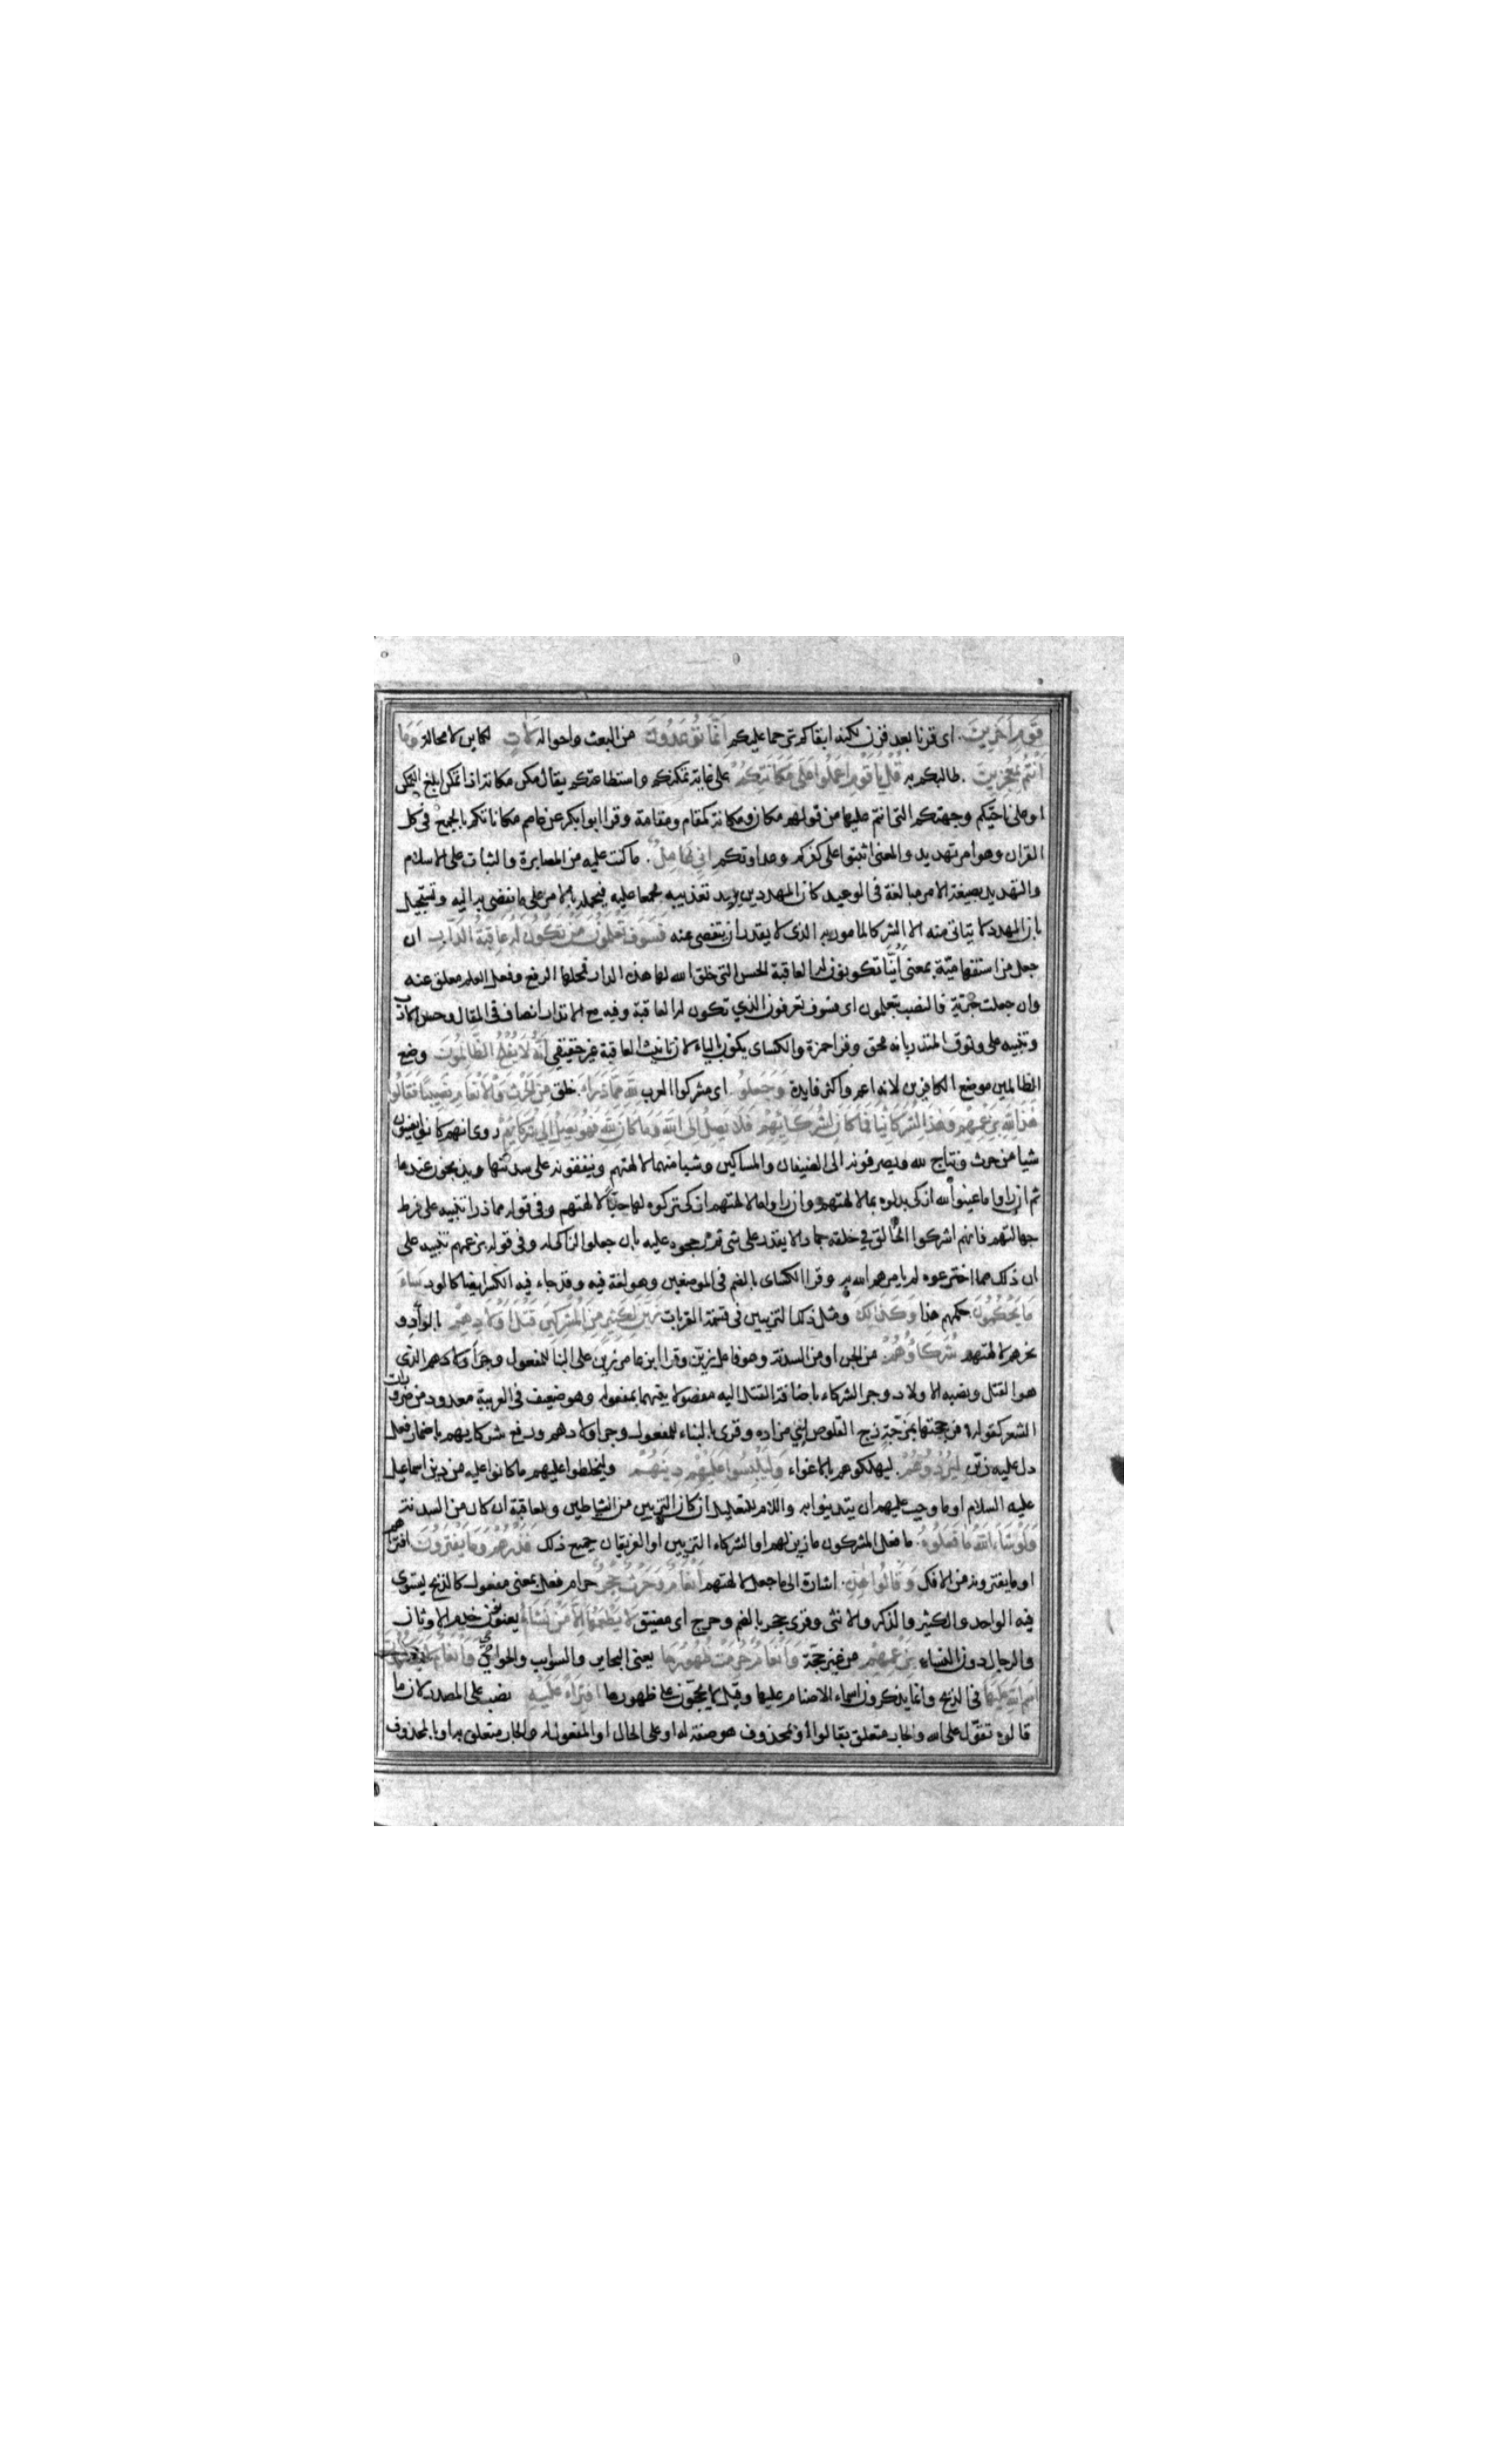 قَوْمٍ آخَرِينَ اى قرنا بعد قرن لكنه ابقاكم ترحما عليكم اِنَّمَا تُوعَدُونَ من البعث واحواله لَآتٍ لكاين لا محالة وَمَا
اَنْتُمْ بِمُعْجِزِينَ طالبكم به قُلْ يَا قَوْمِ اعْمَلُوا عَلَى مَكَانَتِكُمْ على غاية تمكنكم واستطاعتكم يقال مكن مكانة اذا تمكن ابلغ التمكن
او على ناحيتكم وجهتكم التى انتم عليها من قولهم مكان ومكانة كمقام ومقامة وقرا ابو بكر عن عاصم مكاناتكم بالجمع فى كل
القران وهو امر تهديد والمعنى اثبتوا على كفركم وعداوتكم اِنِّي عَامِلٌ ما كنت عليه من المصابرة والثبات على الاسلام
والتهديد بصيغة الامر مبالغة فى الوعيد كان المهدد يريد تعذيبه مجمعا عليه فيحمله بالامر على ما يفضى به اليه وتسجيل
بان المهدد لا يتاتى منه الا الشر كالمامور به الذى لا يقدر ان يتفصى عنه فَسَوْفَ تَعْلَمُونَ مَنْ تَكُونُ لَهُ عَاقِبَةُ الدَّارِ ان
جعل من استفهامية بمعنى اينا تكون له العاقبة الحسنى التى خلق الله لها هذه الدار فمحلها الرفع وفعل العلم معلق عنه
وان جعلت خبرية فالنصب بتعلمون اى فسوف تعرفون الذي تكون له العاقبة وفيه مع الانذار انصاف فى المقال وحسن الادب
وتنبيه على وثوق المنذر بانه محق وقرا حمزة والكساى يكون بالياء لان تانيث العاقبة غير حقيقى اِنَّهُ لَا يُفْلِحُ الظَّالِمُونَ وضع
الظالمين موضع الكافرين لانه اعم واكثر فايدة وَجَعَلُوا اى مشركوا العرب لِلّٰهِ مِمَّا ذَرَاَ خلق مِنَ الْحَرْثِ وَالْاَنْعَامِ نَصِيبًا فَقَالُوا
هٰذَا لِلّٰهِ بِزَعْمِهِمْ وَهٰذَا لِشُرَكَائِنَا فَمَا كَانَ لِشُرَكَائِهِمْ فَلَا يَصِلُ اِلَى اللّٰهِ وَمَا كَانَ لِلّٰهِ فَهُوَ يَصِلُ اِلَى شُرَكَائِهِمْ روى انهم كانوا يعينون
شيا من حرث ونتاج لله ويصرفونه الى الضيفان والمساكين وشيا منهما لالهتهم وينفقونه على سدنتها ويذبحون عندها
ثم ان راوا ما عينوا لله ازكى بدلوه بما لالهتهم وان راوا ما لالهتهم ازكى تركوه لها حبا لالهتهم وفى قوله مما ذرا تنبيه على فرط
جهالتهم فانهم اشركوا الخالق في خلقه جمادا لا يقدر على شى ثم رجحوه عليه بان جعلوا الزاكى له وفى قوله بزعمهم تنبيه على
ان ذلك مما اخترعوه لم يامرهم الله به وقرا الكساى بالضم فى الموضعين وهو لغة فيه وقد جاء فيه الكسر ايضا كالود سَاءَ
مَا يَحْكُمُونَ حكمهم هذا وَكَذٰلِكَ ومثل ذلك التزيين فى قسمة القربات زَيَّنَ لِكَثِيرٍ مِنَ الْمُشْرِكِينَ قَتْلَ اَوْلَادِهِمْ بالوأد و
نحرهم لالهتهم شُرَكَاؤُهُمْ من الجن او من السدنة وهو فاعل زين وقرا ابن عامر زين على البنا للمفعول وجر اولادهم الذى
هو القتل ونصبه الاولاد وجر الشركاء باضافة القتل اليه مفصولا بينهما بمفعوله وهو ضعيف فى العربية معدود من ضرورات
الشعر كقوله فزججتها بمزجة زج القلوص ابي مزاده وقرى بالبناء للمفعول وجر اولادهم ورفع شركايهم باضمار فعل
دل عليه زين لِيُرْدُوهُمْ ليهلكوهم بالاغواء وَلِيَلْبِسُوا عَلَيْهِمْ دِينَهُمْ وليخلطوا عليهم ما كانوا عليه من دين اسماعيل
عليه السلام او ما وجب عليهم ان يتدينوا به واللام للتعليل ان كان التزيين من الشياطين وللعاقبة ان كان من السدنة
وَلَوْ شَاءَ اللّٰهُ مَا فَعَلُوهُ ما فعل المشركون ما زين لهم او الشركاء التزيين او الفريقان جميع ذلك فَذَرْهُمْ وَمَا يَفْتَرُونَ افتراءهم
او ما يفترونه من الافك وَقَالُوا هٰذِهِ اشارة الى ما جعل لالهتهم اَنْعَامٌ وَحَرْثٌ حِجْرٌ حرام فعل بمعنى مفعول كالذبح يستوى
فيه الواحد والكثير والذكر والانثى وقرى حجر بالضم وحرج اى مضيق لَا يَطْعَمُهَا اِلَّا مَنْ نَشَاءُ يعنون خدم الاوثان
والرجال دون النساء بِزَعْمِهِمْ من غير حجة وَاَنْعَامٌ حُرِّمَتْ ظُهُورُهَا يعنى البحاير والسوايب والحوامى وَاَنْعَامٌ لَا يَذْكُرُونَ
اسْمَ اللّٰهِ عَلَيْهَا فى الذبح وانما يذكرون اسماء الاصنام عليها وقيل لا يحجون على ظهورها افْتِرَاءً عَلَيْهِ نصب على المصدر لان ما
قالوه تقول على الله والجار متعلق بقالوا او بمحذوف هو صفة له او على الحال او المفعول له والجار متعلق به او بالمحذوف